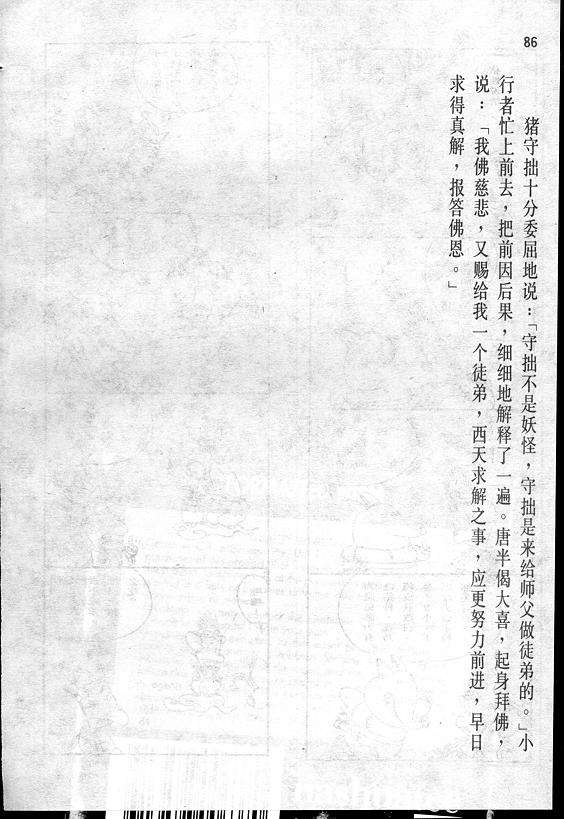 86
猪守拙十分委屈地说：「守拙不是妖怪，守拙是来给师父做徒弟的。」小
行者忙上前去，把前因后果，细细地解释了一遍。唐半偈大喜，起身拜佛，
说：「我佛慈悲，又赐给我一个徒弟，西天求解之事，应更努力前进，早日
求得真解，报答佛恩。」